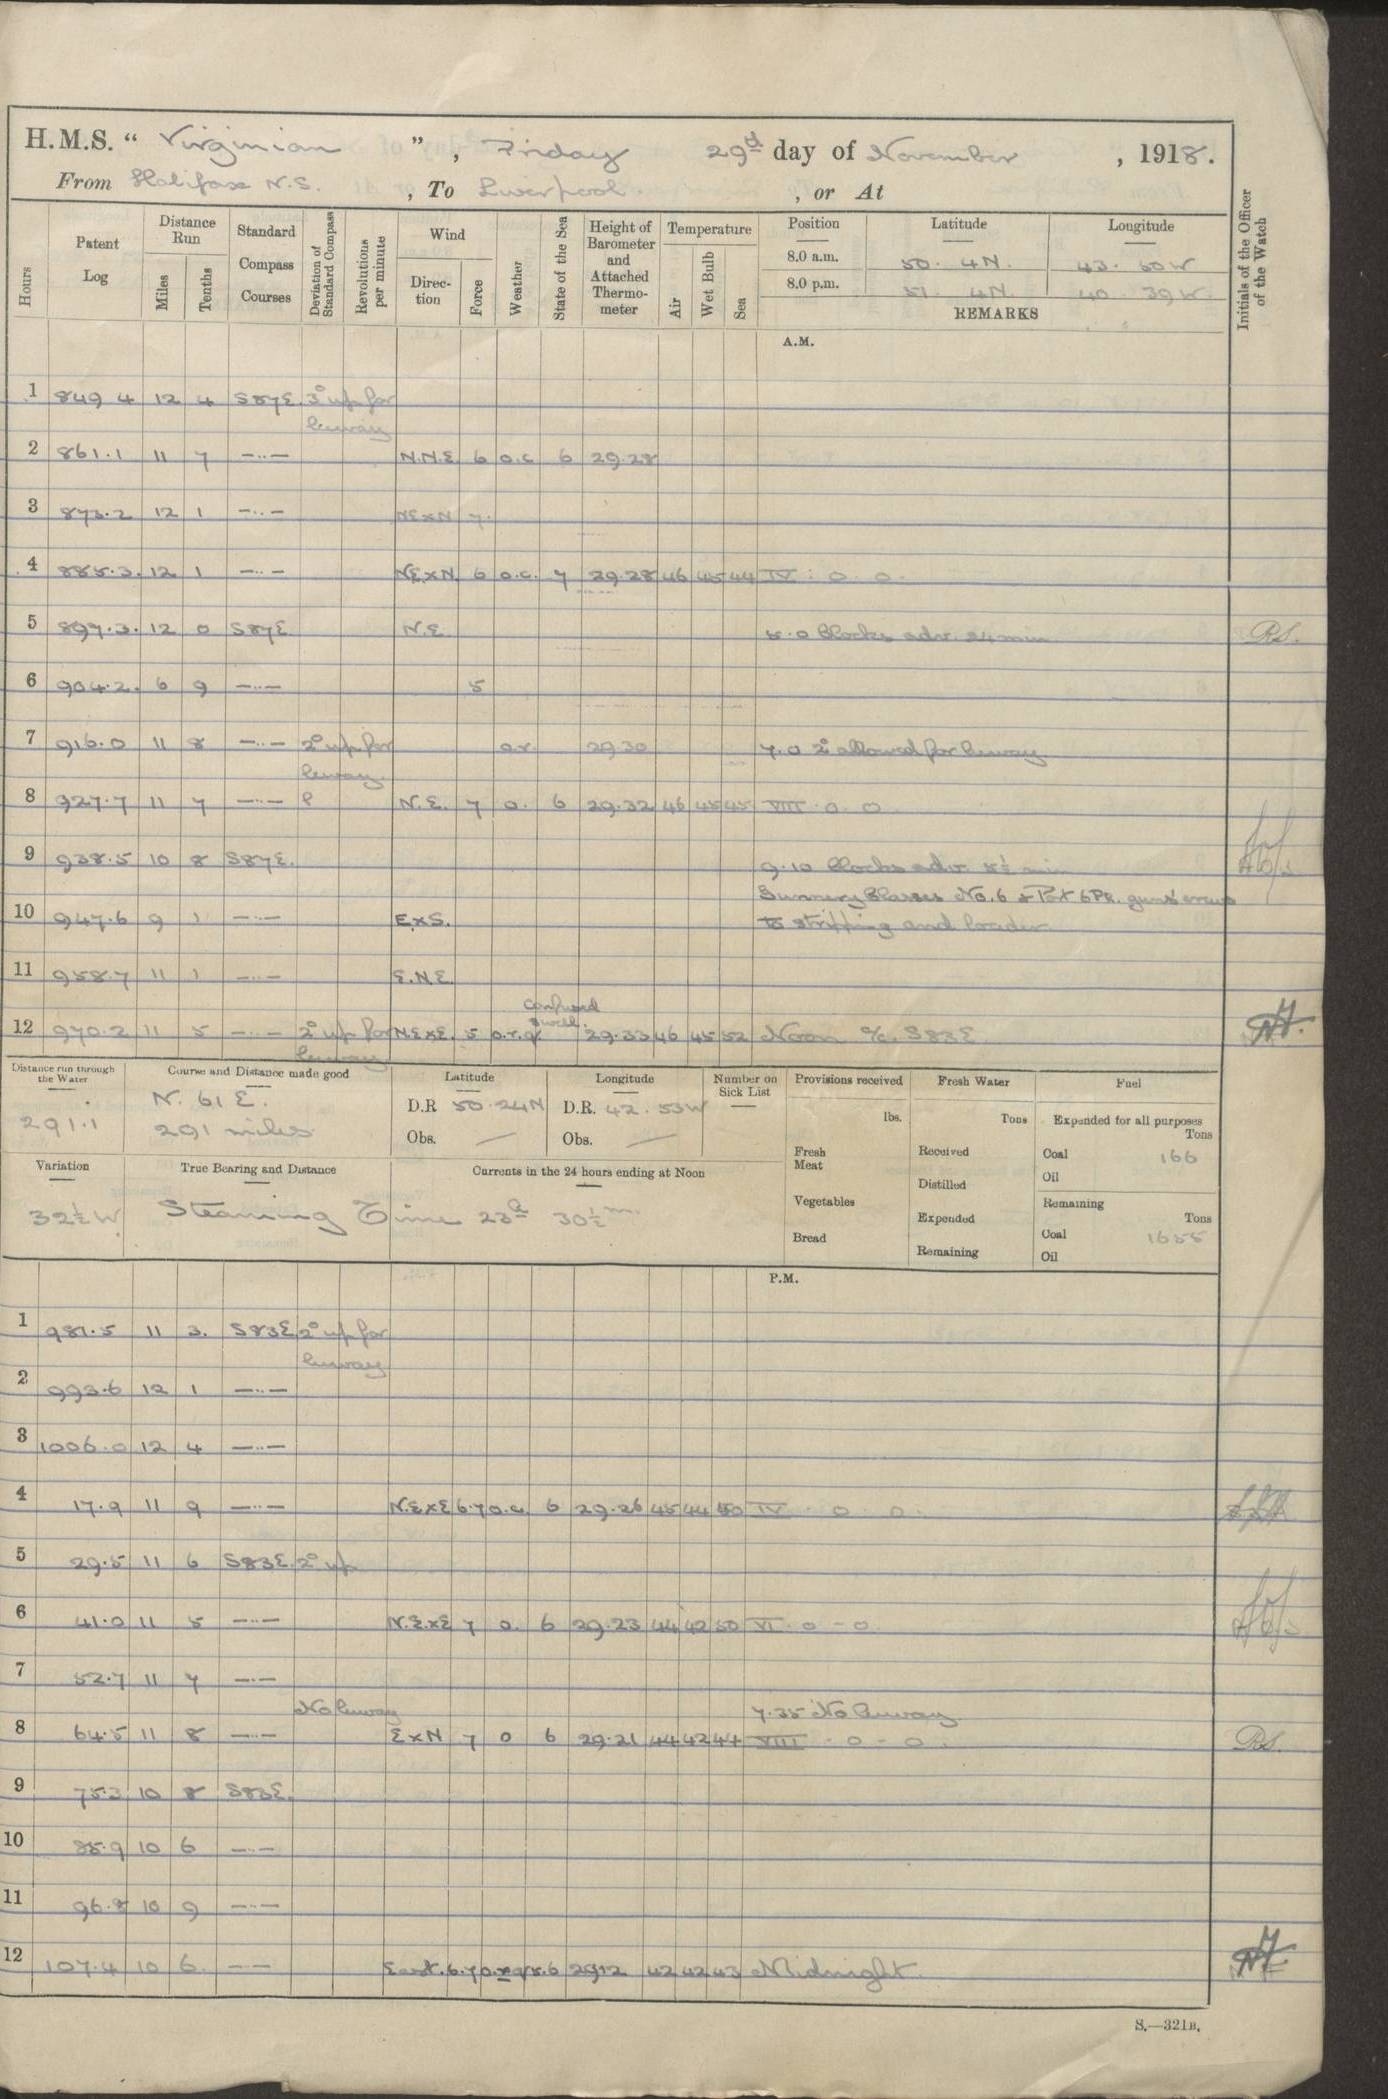 H.M.S. “ Virginian ” , Friday 29th day of November , 1918.
From Halifax N.S. , To Liverpool. , or At
Hours
Patent Log
Distance Run
Miles
Tenths
Standard Compass Courses
Deviation of Standard Compass
Revolutions per minute
Wind
Direction
Force
Weather
State of the Sea
Height of Barometer and Attached Thermometer
Temperature
Air
Wet Bulb
Sea
Position Latitude Longitude
8.0 a.m. 50. 4N. 43. 50W
8.0 p.m. 51. 4N. 40. 39W
REMARKS
Initials of the Officer of the Watch
A.M.
1 849 4 12 4 S87E. 3° up for
leeway
2 861.1 11 7 —..— N.N.E 6 o.c 6 29.28
3 873.2 12 1 —..— NExN 7.
4 885.3. 12 1 —..— NExN 6 o.c. 7 29.28 46 45 44 IV : 0 0.
5 897.3. 12 0 S87E N.E. 5.0 Clocks adv. 24 min RS.
6 904.2. 6 9 —..— 5
7 916.0 11 8 —..— 2° up for o.r. 29.30 7.0 2° allowed for leeway
leeway.
8 927.7 11 7 —..— N.E. 7 o. 6 29.32 46 45 45 VIII . 0 0
9 938.5 10 8 S87E. 9.10 Clocks adv. 5½ min
Gunnery Classes No. 6 & Port 6Pr. guns crews
10 947.6 9 1 —..— ExS. to stripping and loader
11 958.7 11 1 —..— E.N.E
confused
swell.
12 970.2 11 5 —..— 2° up for NExE. 5 o.r.q. 29.33 46 45 52 Noon a/c. S83E
leeway
Distance run through the Water
291.1
Course and Distance made good
N. 61 E.
291 miles
Latitude
D.R 50.24N
Obs. —
Longitude
D.R. 42. 53W
Obs. —
Number on Sick List
Provisions received
lbs.
Fresh Meat
Vegetables
Bread
Fresh Water
Tons
Received
Distilled
Expended
Remaining
Fuel
Expended for all purposes
Tons
Coal 166
Oil
Remaining
Tons
Coal 1655
Oil
Variation
32½ W.
True Bearing and Distance
Currents in the 24 hours ending at Noon
Steaming Time 23h 30½ m.
P.M.
1 981.5 11 3. S83E 2° up for
leeway
2 993.6 12 1 —..—
3 1006.0 12 4 —..—
4 17.9 11 9 —..— N.ExE 6.7 o.c. 6 29.26 45 44 50 IV . 0 0.
5 29.5 11 6 S83E. 2° up
6 41.0 11 5 —..— N.ExE 7 o. 6 29.23 44 42 50 VI . 0 - 0
7 52.7 11 7 —..—
No leeway 7.35 No leeway
8 64.5 11 8 —..— ExN 7 o 6 29.21 44 42 44 VIII . 0 - 0. RS.
9 75.3 10 8 S83E.
10 85.9 10 6 —..—
11 96.8 10 9 —..—
12 107.4 10 6. —..— East. 6.7 6 2912 42 42 43 Midnight
S.—321B.